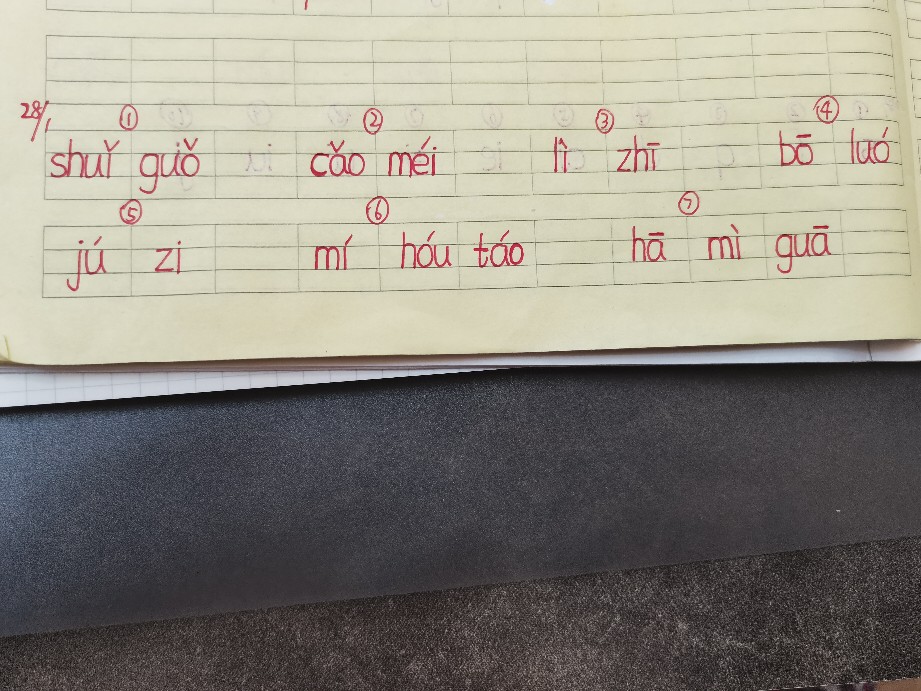 28/1
① ② ③ ④
shuǐ guǒ cǎo méi lì zhī bō luó
⑤ ⑥ ⑦
jú zi mí hóu táo hā mì guā